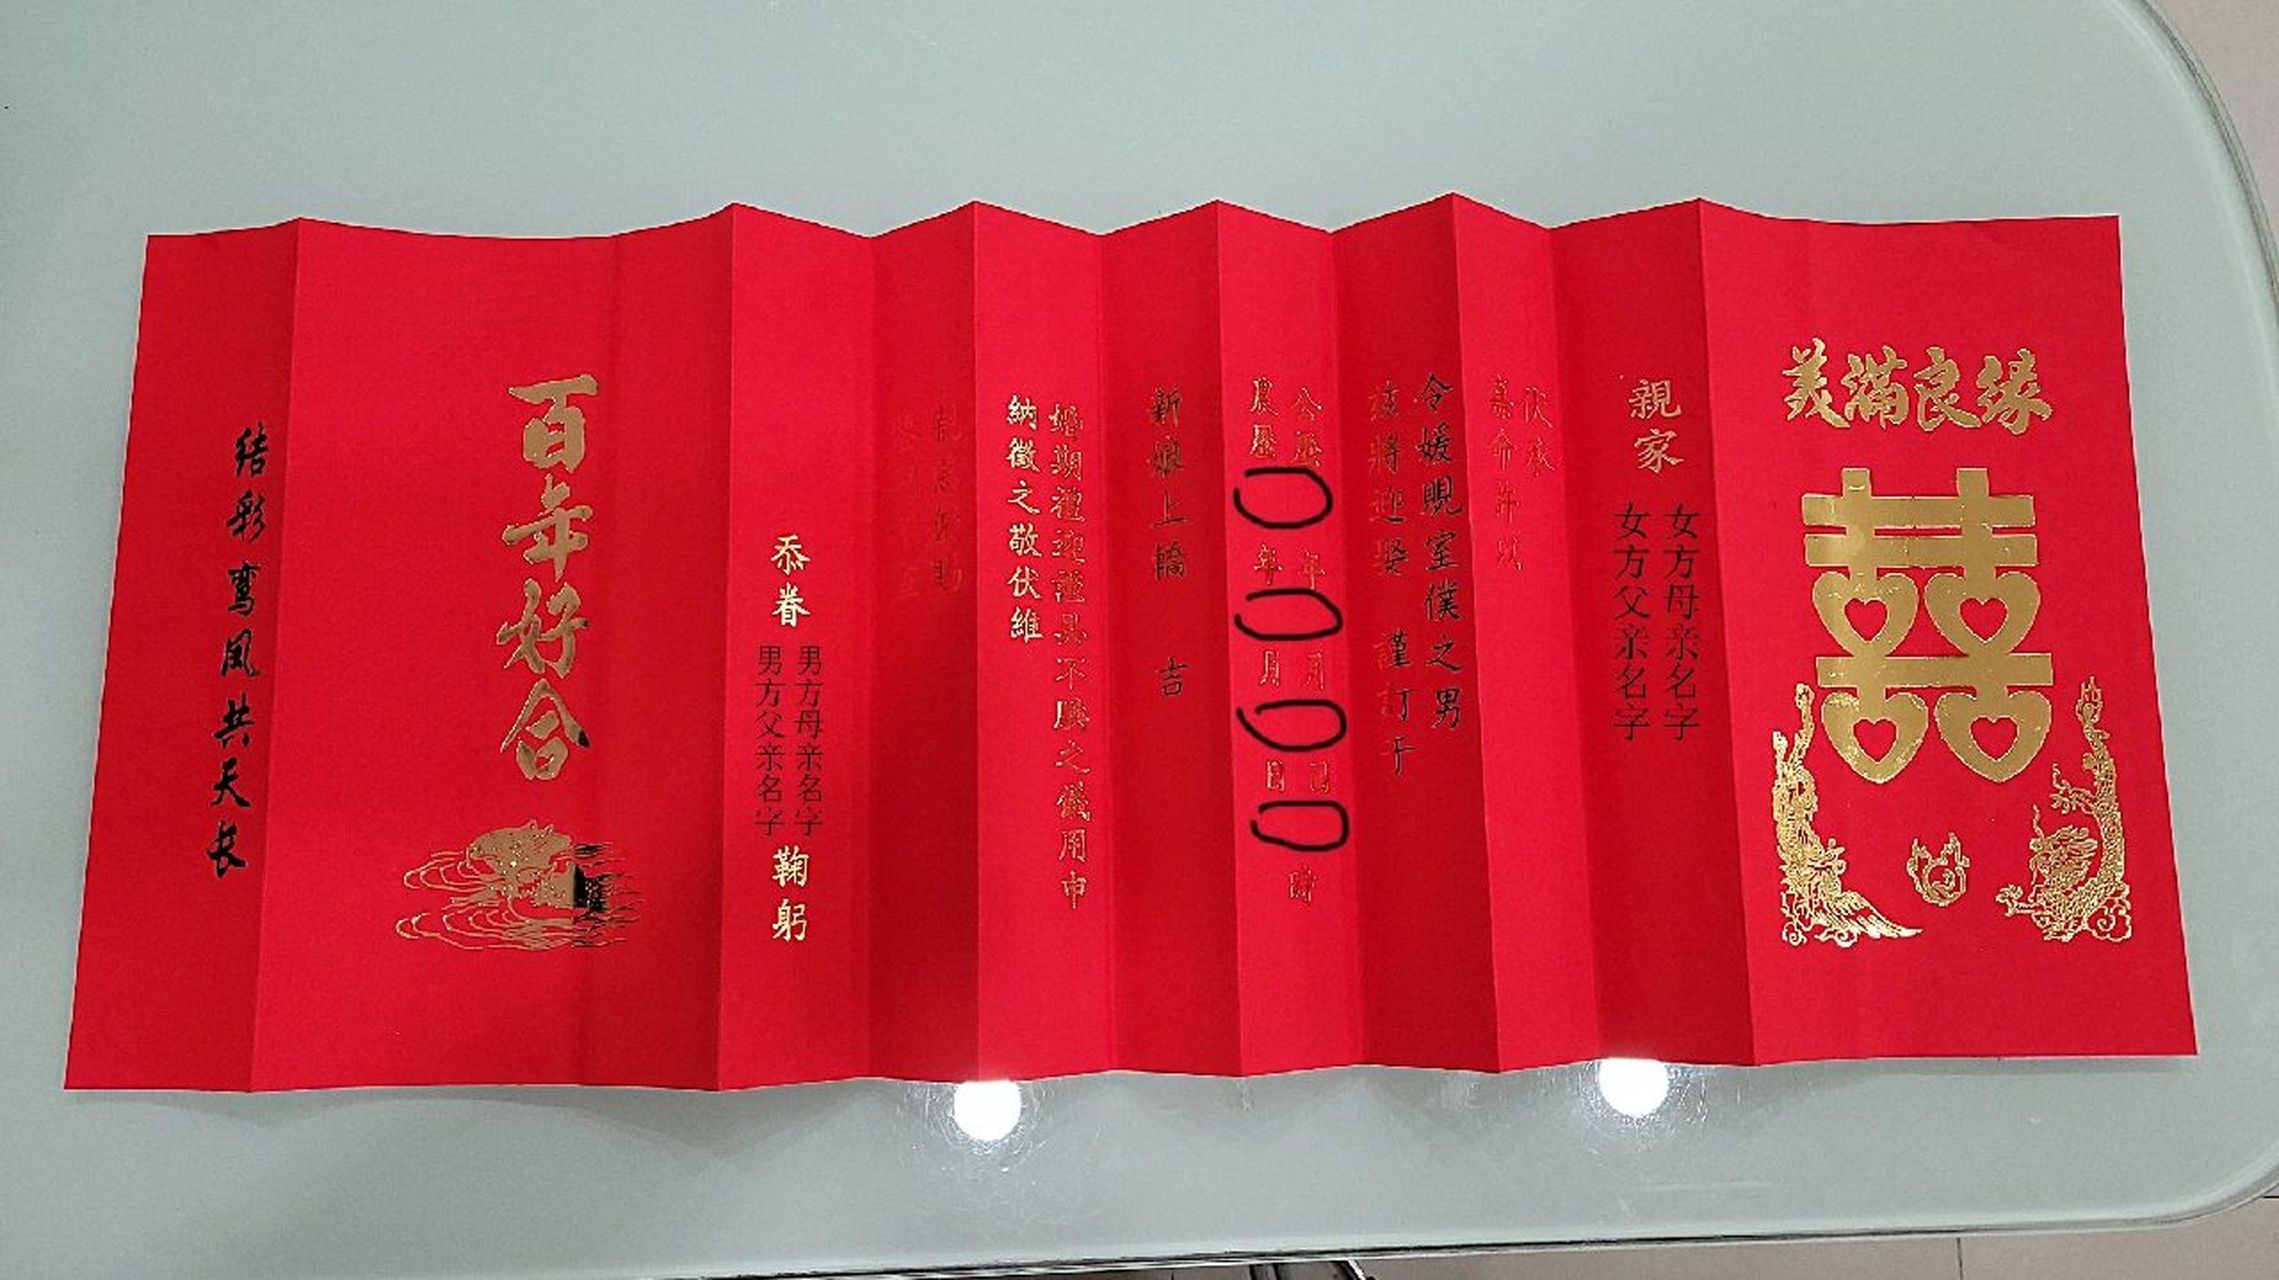 美滿良緣
囍
親家
女方母亲名字
女方父亲名字
伏承
嘉命許以
令媛貺室僕之男
兹將迎娶 謹訂于
公曆 年 月 日 時
農曆 年 月 日
新娘上轎 吉
婚期禮迎謹具不腆之儀用申
納徵之敬伏維
忝眷
男方母亲名字
男方父亲名字
鞠躬
百年好合
结彩鸾凤共天长